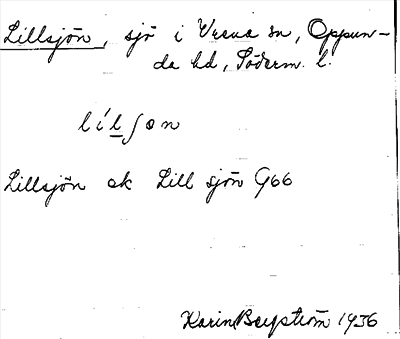 Lillsjön, sjö i Vrena sn, Oppun-
da hd, Söderm. l.
lílʃon
Lillsjön ek Lill sjön G66
Karin Bergström 1936